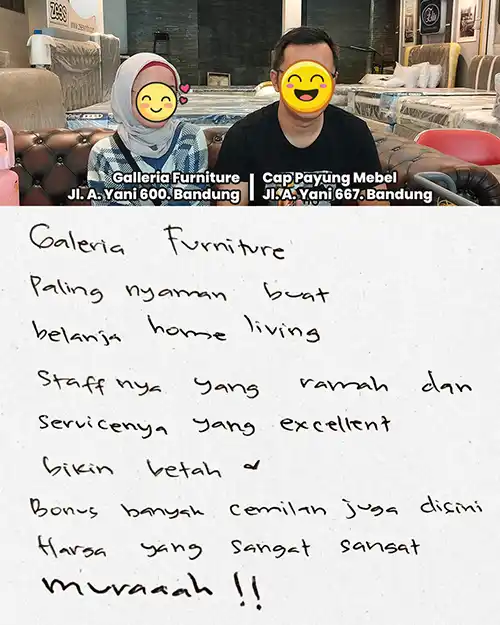 Galleria Furniture
Jl. A. Yani 600. Bandung
Cap Payung Mebel
Jl. A. Yani 667. Bandung
Galeria Furniture
Paling nyaman buat
belanja home living
Staff nya yang ramah dan
Servicenya yang excellent
bikin betah
Bonus banyak cemilan juga disini
Harga yang sangat sangat
muraaah !!